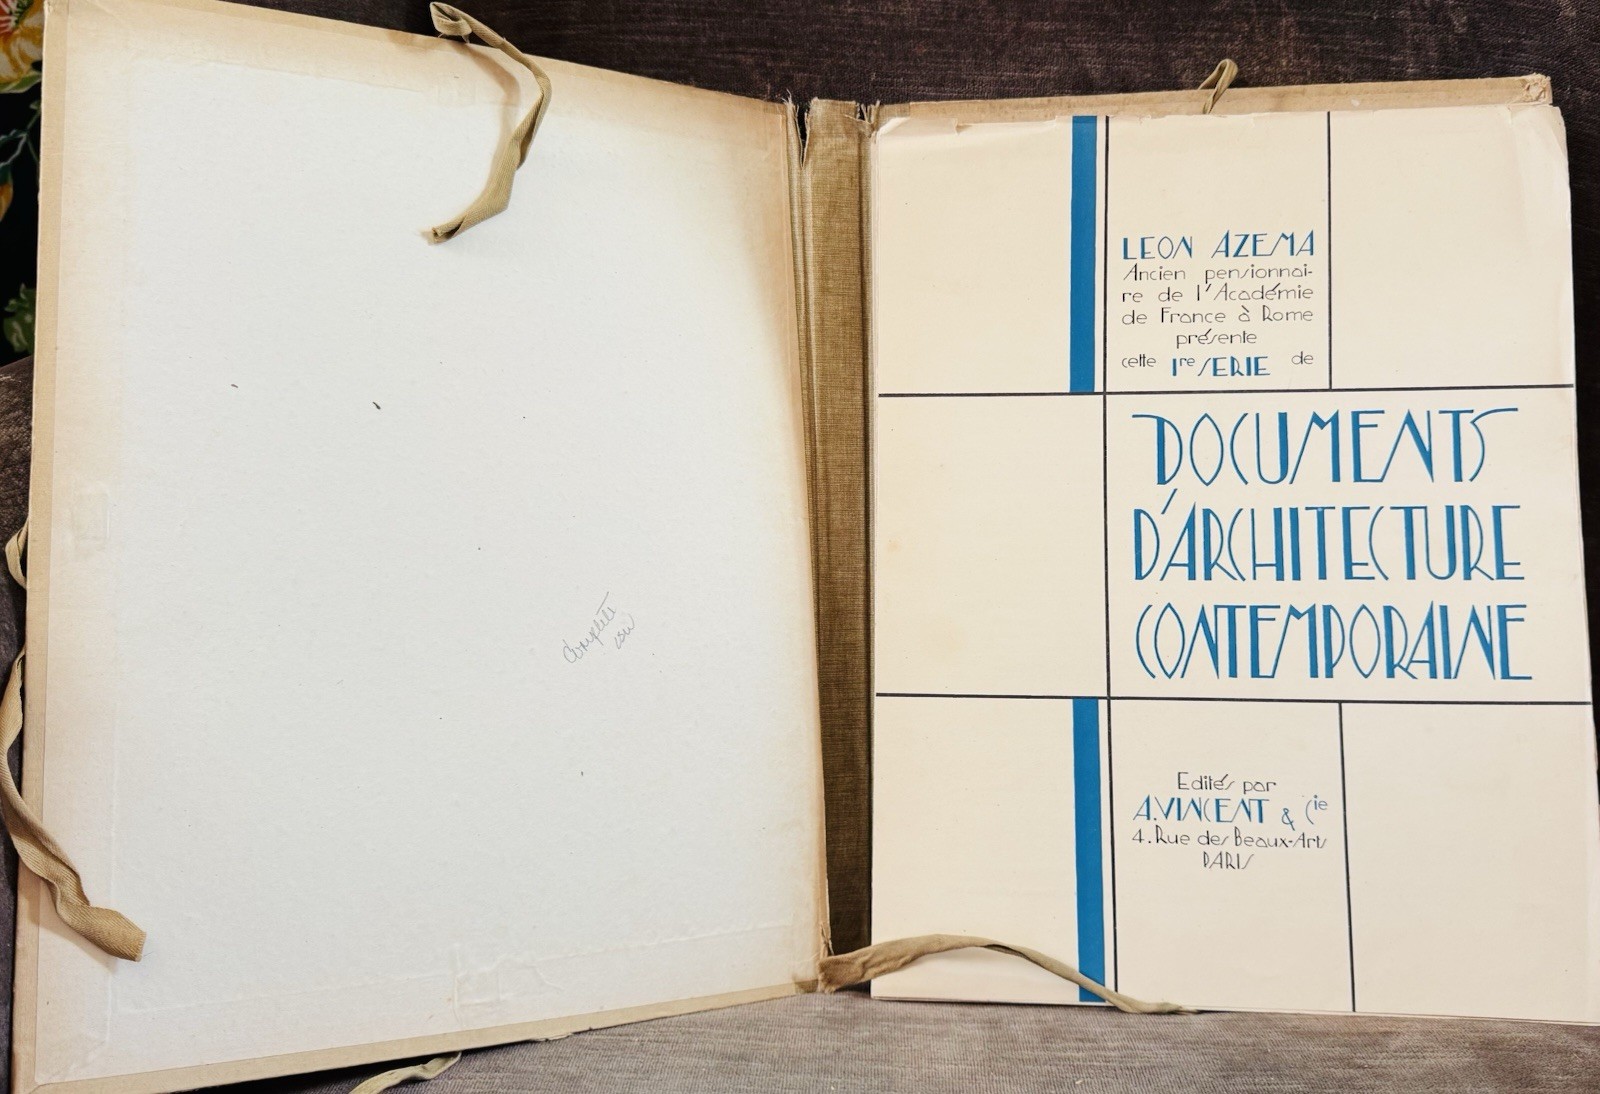 Complete
LEON AZEMA
Ancien pensionnai-
re de l'Académie
de France à Rome
présente
cette 1re SERIE de
DOCUMENTS
D'ARCHITECTURE
CONTEMPORAINE
Edités par
A.VINCENT & Cie
4. Rue des Beaux-Arts
PARIS